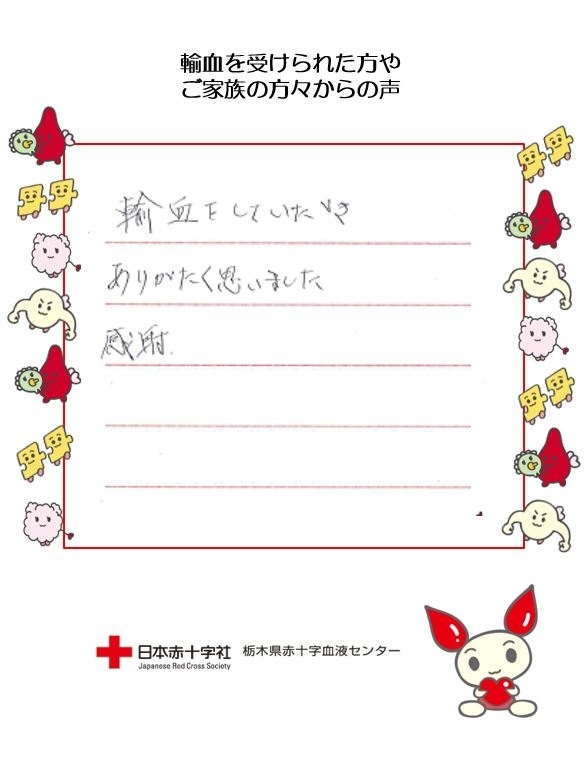 輸血を受けられた方や
ご家族の方々からの声
輸血をしていただき
ありがたく思いました
感謝.
日本赤十字社 栃木県赤十字血液センター
Japanese Red Cross Society